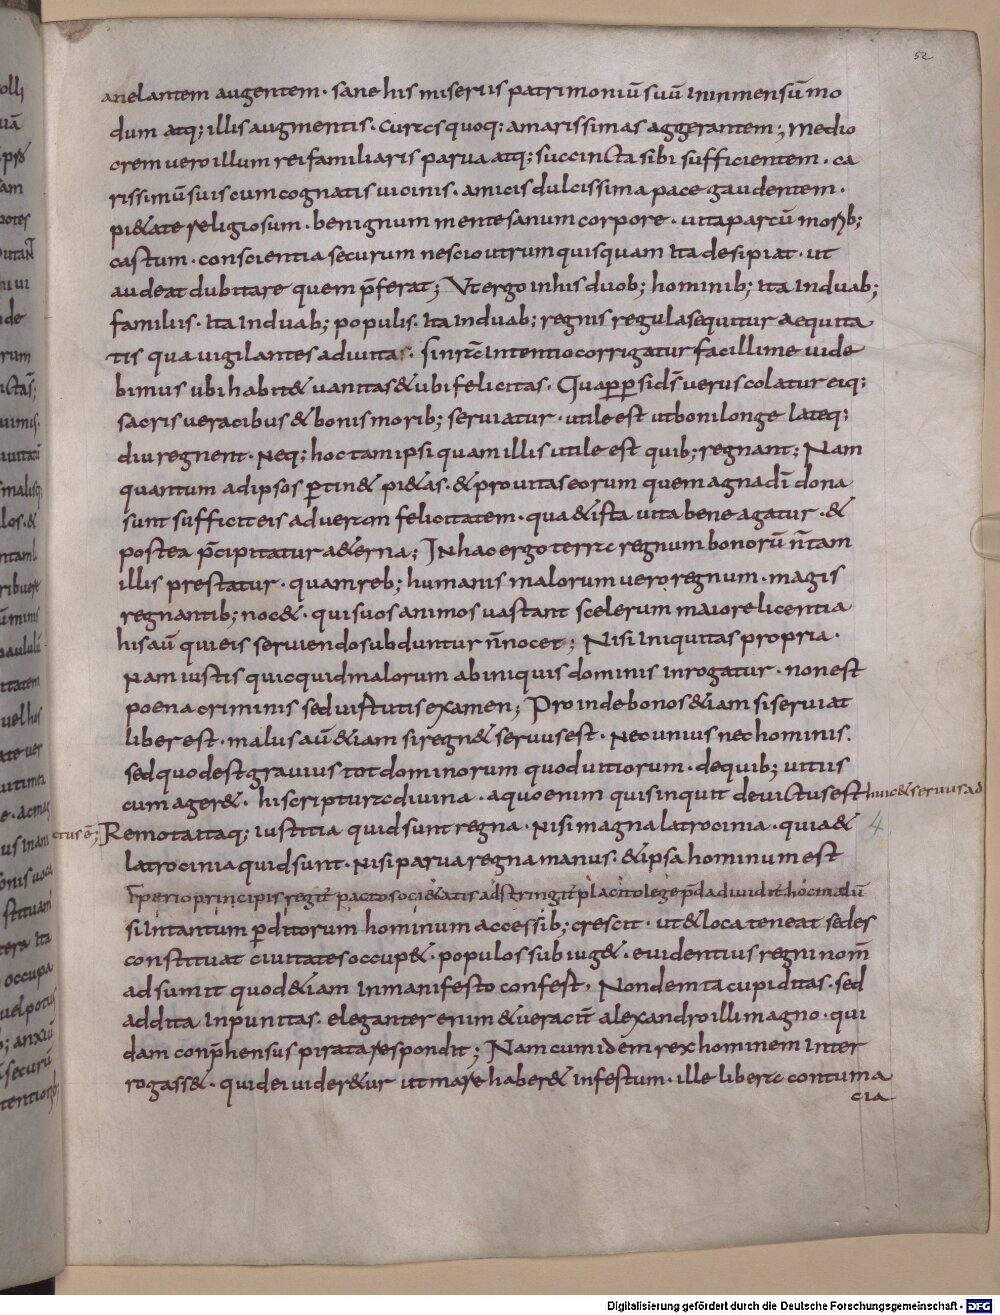 52
anelantem augentem · sane his miseriis patrimoniū suū ininmensū mo
dum atq; illis augmentis · curas quoq; amarissimas aggerantem; medio
crem uero illum rei familiaris parua atq; succincta sibi sufficientem · ca
rissimū suis cum cognatis uicinis · amicis dulcissima pace gaudentem ·
pi&ate religiosum · benignum mente sanum corpore · uita parcū morib;
castum · conscientia securum nescio utrum quisquam ita desipiat · ut
audeat dubitare quem p̄ferat; Ut ergo in his duob; hominib; ita in duab;
familiis · ita in duab; populis · ita in duab; regnis regula sequitur aequita
tis qua uigilantes adiuita · si nr̄a intentio corrigatur facillime uide
bimus ubi habit& uanitas & ubi felicitas · Quapp̱ si ds̄ uerus colatur eiq;
sacris ueracibus & bonis morib; seruiatur · utile est ut boni longe lateq;
diu regnent · Neq; hoc tam ipsi quam illis utile est quib; regnant; Nam
quantum ad ipsos ꝑtin& pi&as · & prouitas eorum quem agna dī dona
sunt sufficit eis ad ueram felicitatem · qua & ista uita bene agatur · &
postea p̄cipitatur a&erna; In hac ergo terra regnum bonorū n̄ tam
illis prestatur · quam reb; humanis malorum uero regnum · magis
regnantib; noc& · qui suos animos uastant scelerum maiore licentia
his aū qui eis seruiendo subduntur n̄ nocet; Nisi iniquitas propria ·
Nam iustis quicquid malorum ab iniquis dominis inrogatur · non est
poena criminis sed uirtutis examen; Proinde bonos &iam si seruiat
liber est · malus aū &iam si regn& seruus est · Nec unius nec hominis ·
sed quod est grauius tot dominorum quod uitiorum · de quib; uitiis
cum ager& · hi scriptura diuina · a quo enim quis inquit deuictus est huic & seruus ad
ctus ē; Remota itaq; iustitia quid sunt regna · Nisi magna latrocinia · quia & 4
latrocinia quid sunt · Nisi parua regna manus · & ipsa hominum est
Iperio principis regit̄ pacto soci&atis adstringit̄ placito lege p̄da diuidit̄ hoc malū
si in tantum ꝑditorum hominum accessib; crescit · ut & loca teneat sedes
constituat ciuitates occup& · populos subiug& · euidentius regni nom̄
adsumit quod &iam in manifesto confest, Non dem ta cupiditas · sed
addita inpunitas · eleganter enim & ueracit̄ alexandro illi magno · qui
dam conp̄hensus pirata respondit; Nam cum idem rex hominem inter
rogass& · quid ei uider&ur ut mare haber& infestum · ille libera contuma
cia
Digitalisierung gefördert durch die Deutsche Forschungsgemeinschaft - DFG